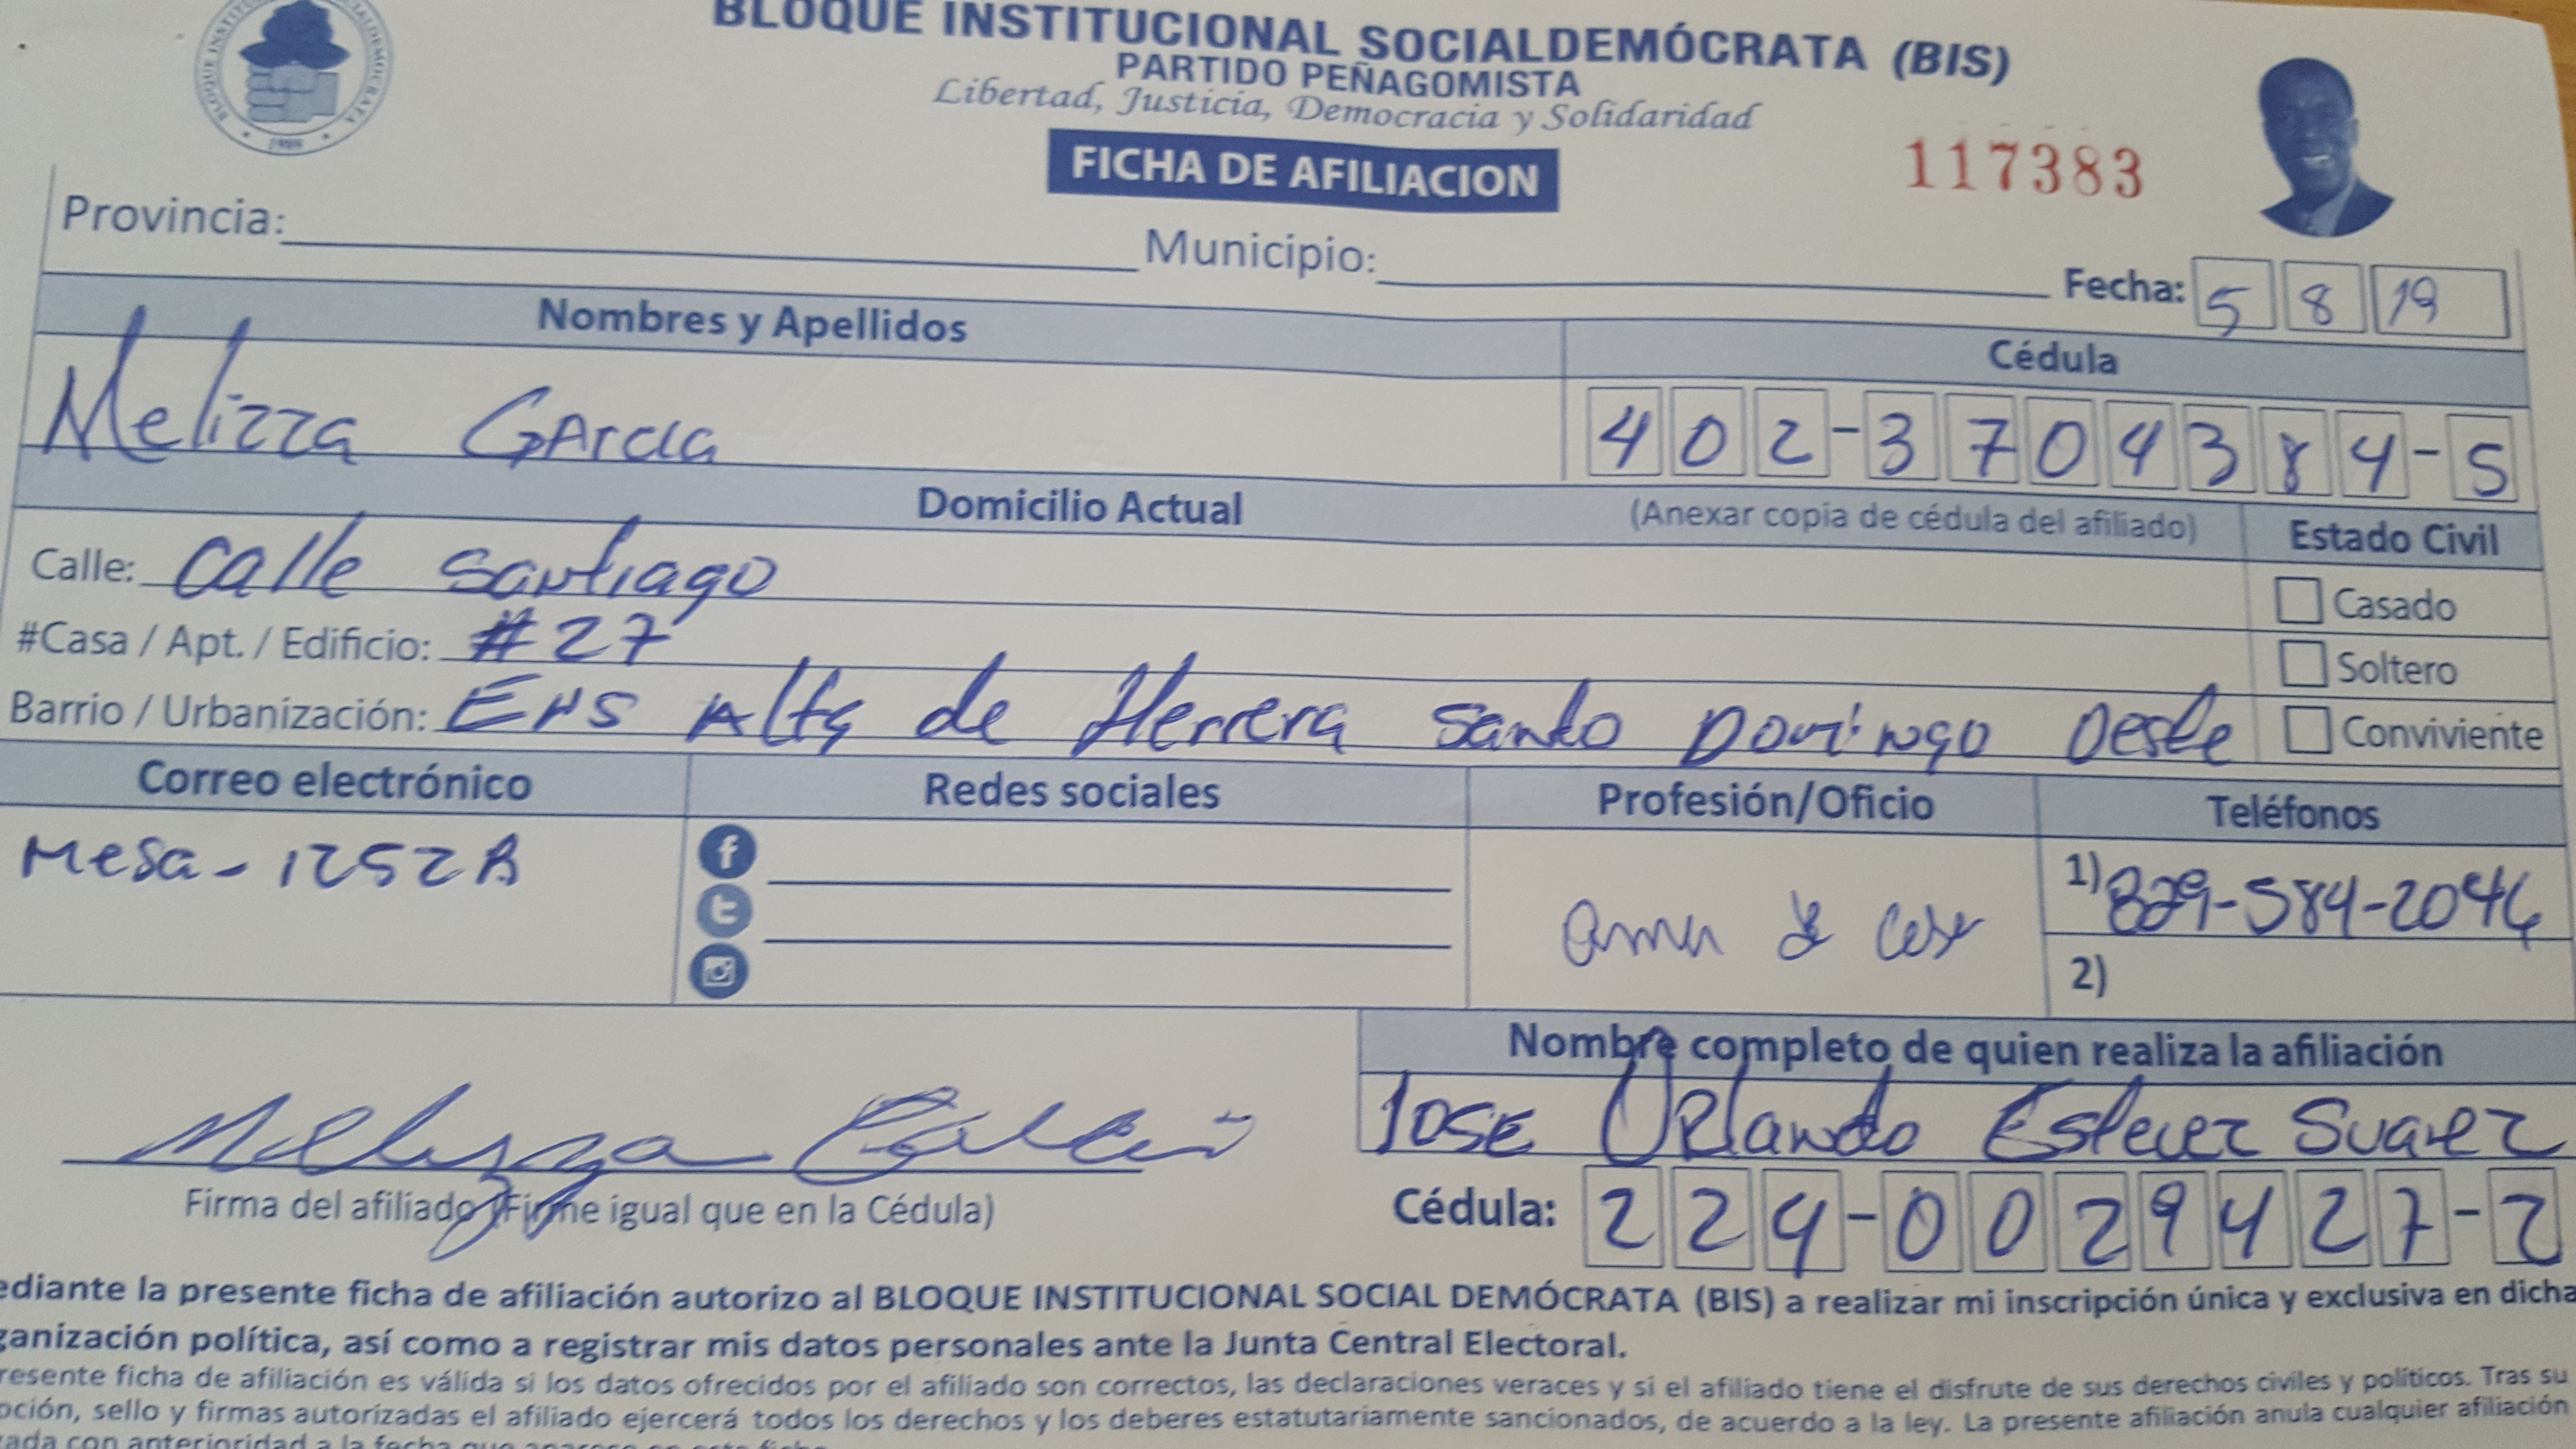 BLOQUE INSTITUCIONAL SOCIALDEMÓCRATA (BIS)
PARTIDO PEÑAGOMISTA
Libertad, Justicia, Democracia y Solidaridad
FICHA DE AFILIACION
117383
Provincia:
Municipio:
Fecha: 5 8 19
Nombres y Apellidos
Cédula
Melizza GArcia
402-3704384-5
Domicilio Actual
(Anexar copia de cédula del afiliado)
Estado Civil
Calle: calle santiago
Casado
#Casa / Apt. / Edificio: #27
Soltero
Barrio / Urbanización: ENS Alta de Herrera Santo Domingo Oeste
Conviviente
Correo electrónico
Redes sociales
Profesión/Oficio
Teléfonos
Mesa-1252A
ama de casa
1) 829-584-2046
2)
Nombre completo de quien realiza la afiliación
Jose Orlando Estevez Suarez
Melizza
Firma del afiliado (Firme igual que en la Cédula)
Cédula: 224-0029427-2
ediante la presente ficha de afiliación autorizo al BLOQUE INSTITUCIONAL SOCIAL DEMÓCRATA (BIS) a realizar mi inscripción única y exclusiva en dicha
ganización política, así como a registrar mis datos personales ante la Junta Central Electoral.
resente ficha de afiliación es válida si los datos ofrecidos por el afiliado son correctos, las declaraciones veraces y si el afiliado tiene el disfrute de sus derechos civiles y políticos. Tras su
pción, sello y firmas autorizadas el afiliado ejercerá todos los derechos y los deberes estatutariamente sancionados, de acuerdo a la ley. La presente afiliación anula cualquier afiliación